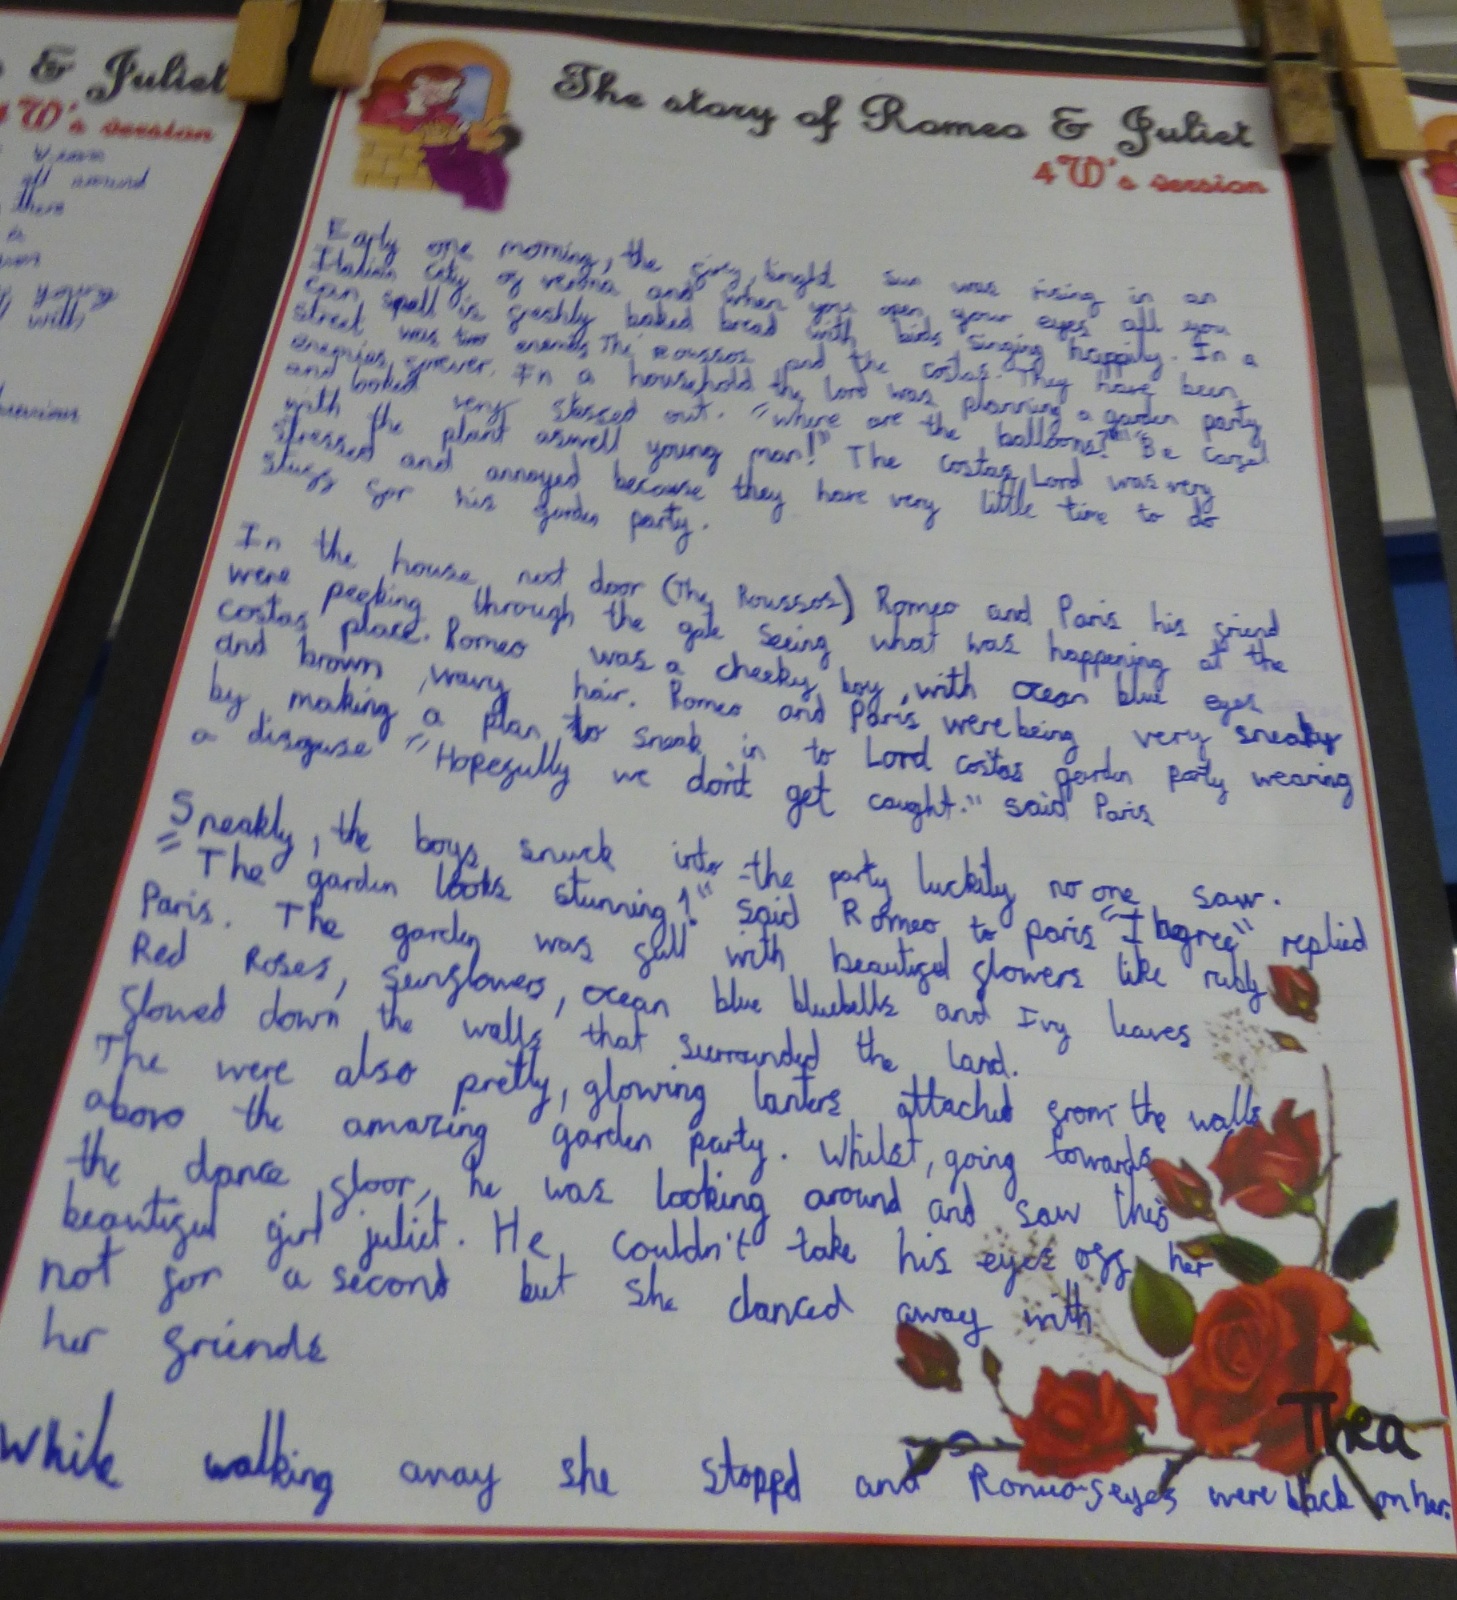 & Juliet
W's version
all around
there
a
young
with
The story of Romeo & Juliet
4W's version
Early one morning, the firey, bright sun was rising in an
Italian City of verona and when you open your eyes all you
can smell is freshly baked bread with birds singing happily. In a
street was two enemies The Roussos and the costas. They have been
enemies forever. In a household the lord was planning a garden party
and looked very stessed out. "where are the balloons?" "Be carfel
with the plant aswell young man!" The costas Lord was very
stressed and annoyed because they have very little time to do
stuff for his garden party.
In the house next door (The Roussos) Romeo and Paris his friend
were peeking through the gate seeing what was happening at the
costas place. Romeo was a cheeky boy, with ocean blue eyes
and brown, wavy hair. Romeo and Paris were being very sneaky
by making a plan to sneak in to Lord costas garden party wearing
a disguse "Hopefully we don't get caught." said Paris
Sneakly, the boys snuck into the party luckily no one saw.
"The garden looks stunning!" said Romeo to paris "I agree" replied
Paris. The garden was full with beautiful flowers like rubly
Red Roses, sunflowers, ocean blue bluebells and Ivy leaves
flowed down the walls that surrounded the land.
The were also pretty, glowing lanters attached from the walls
above the amazing garden party. Whilst, going towards
the dance floor, he was looking around and saw this
beautiful girl juliet. He couldn't take his eyes off her
not for a second but she danced away with
her friends
While walking away she stoppd and Romeo's eyes were back on her.
Thea